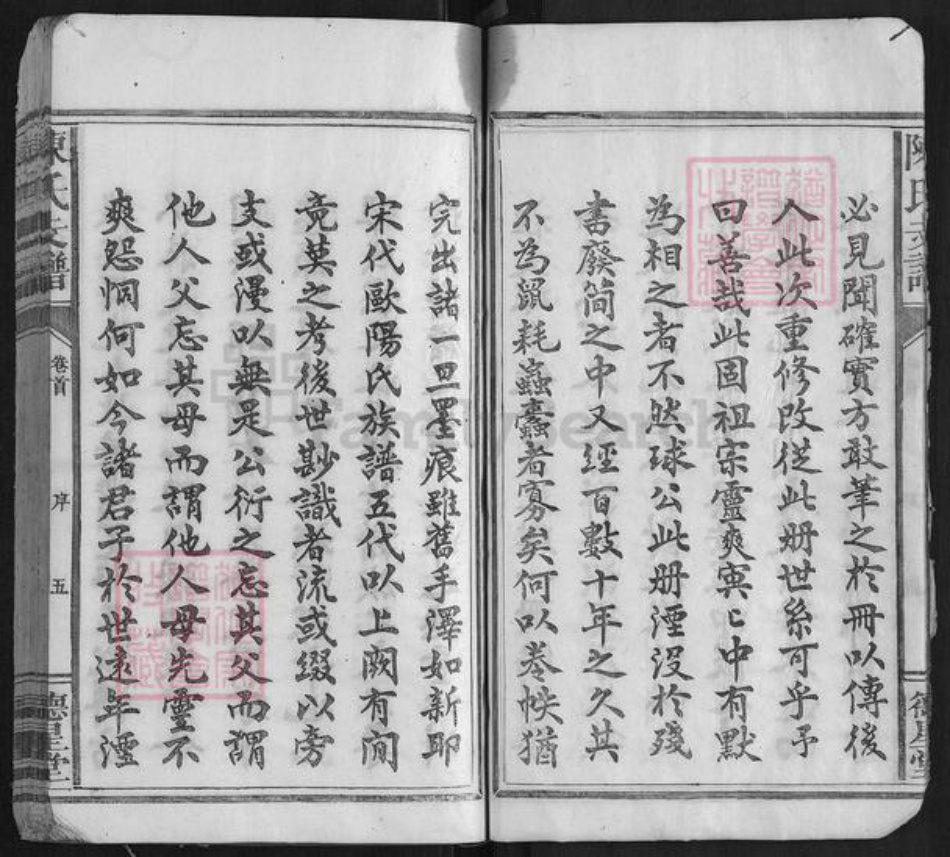 必見聞確實方敢筆之於冊以傳後
人此次重修改從此册世系可乎予
曰善哉此固祖宗靈爽寞匕中有默
為相之者不然球公此册湮没於殘
書廢简之中又經百數十年之久其
不為鼠耗蟲蠹者寡矣何以卷帙猶
完出諸一旦墨痕雖舊手澤如新即
宋代歐陽氏族譜五代以上闕有間
竟莫之考後世尠識者流或綴以旁
支或漫以無是公衍之忘其父而謂
他人父忘其母而謂他人母先靈不
爽怨恫何如今諸君子於世遠年湮
陳氏支譜
卷首
序
五
德星堂